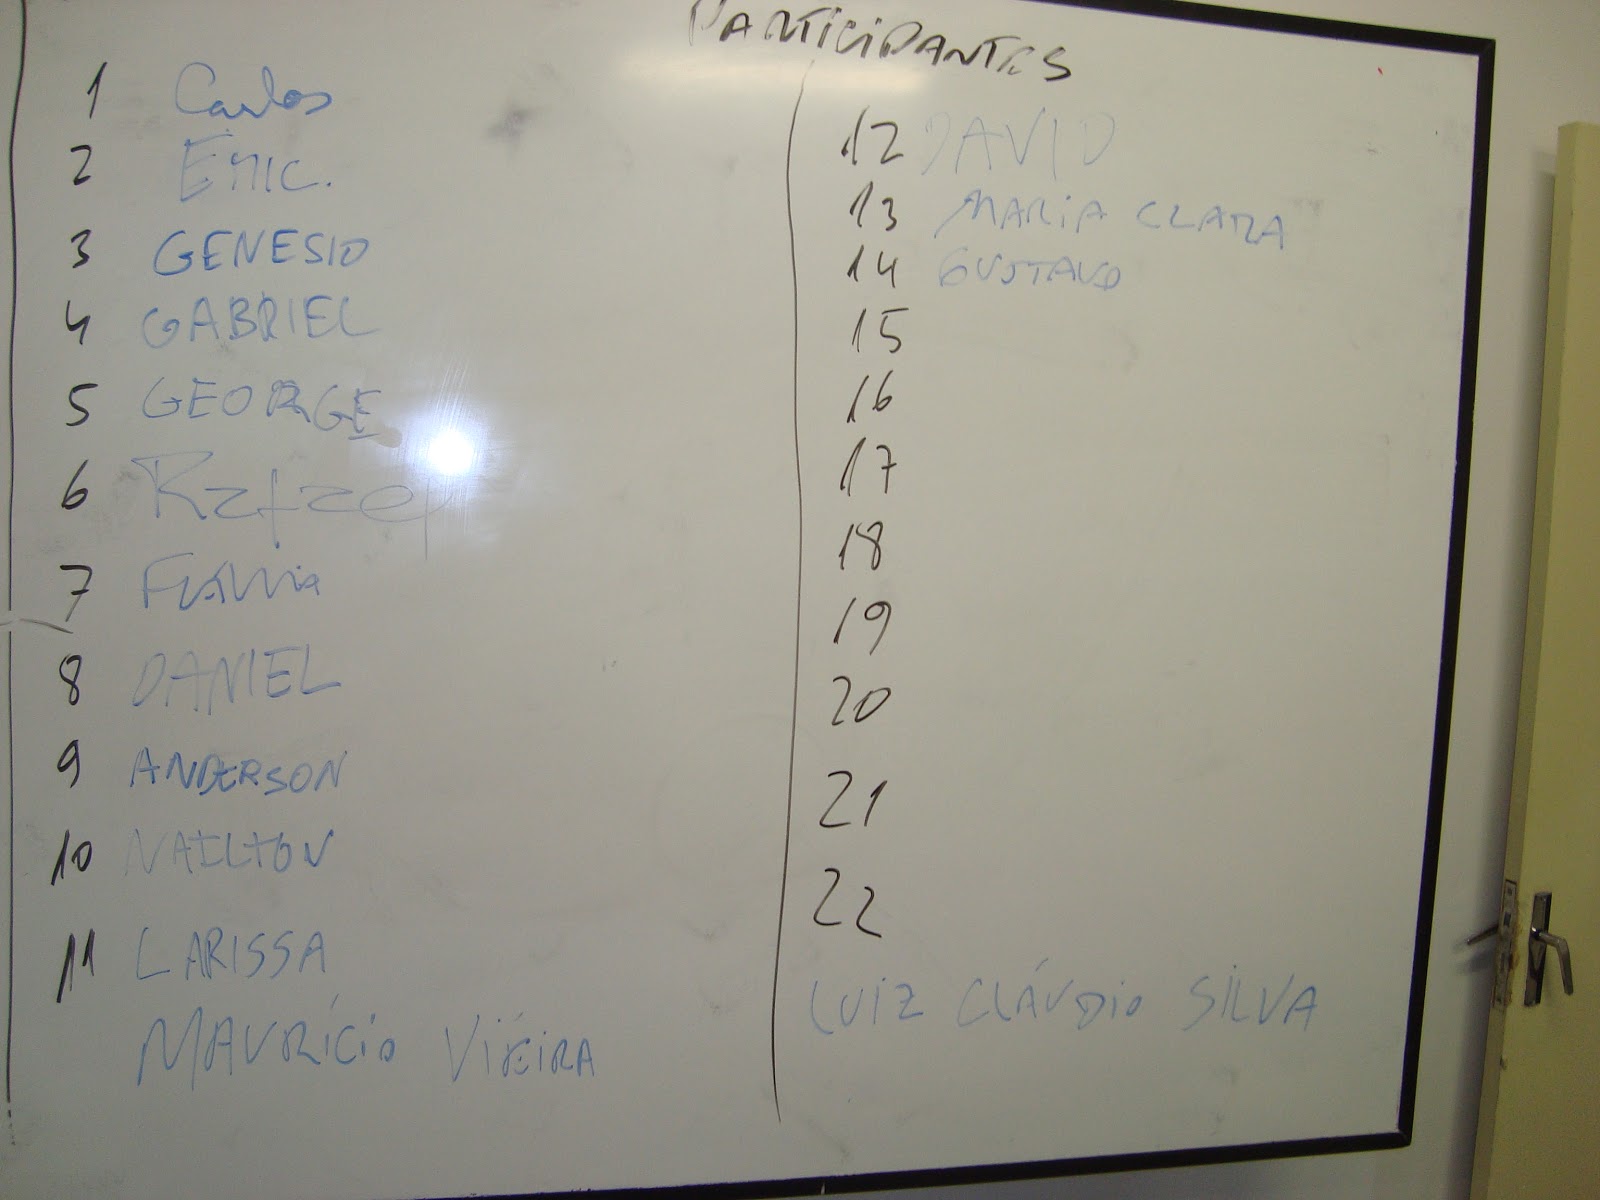 PARTICIPANTES
1 Carlos
2 ERIC.
3 GENESIO
4 GABRIEL
5 GEORGE
6 Rafael
7 Flávia
8 DANIEL
9 ANDERSON
10 NAILTON
11 LARISSA
MAURÍCIO VIEIRA
12 DAVID
13 MARIA CLARA
14 GUSTAVO
15
16
17
18
19
20
21
22
LUIZ CLÁUDIO SILVA